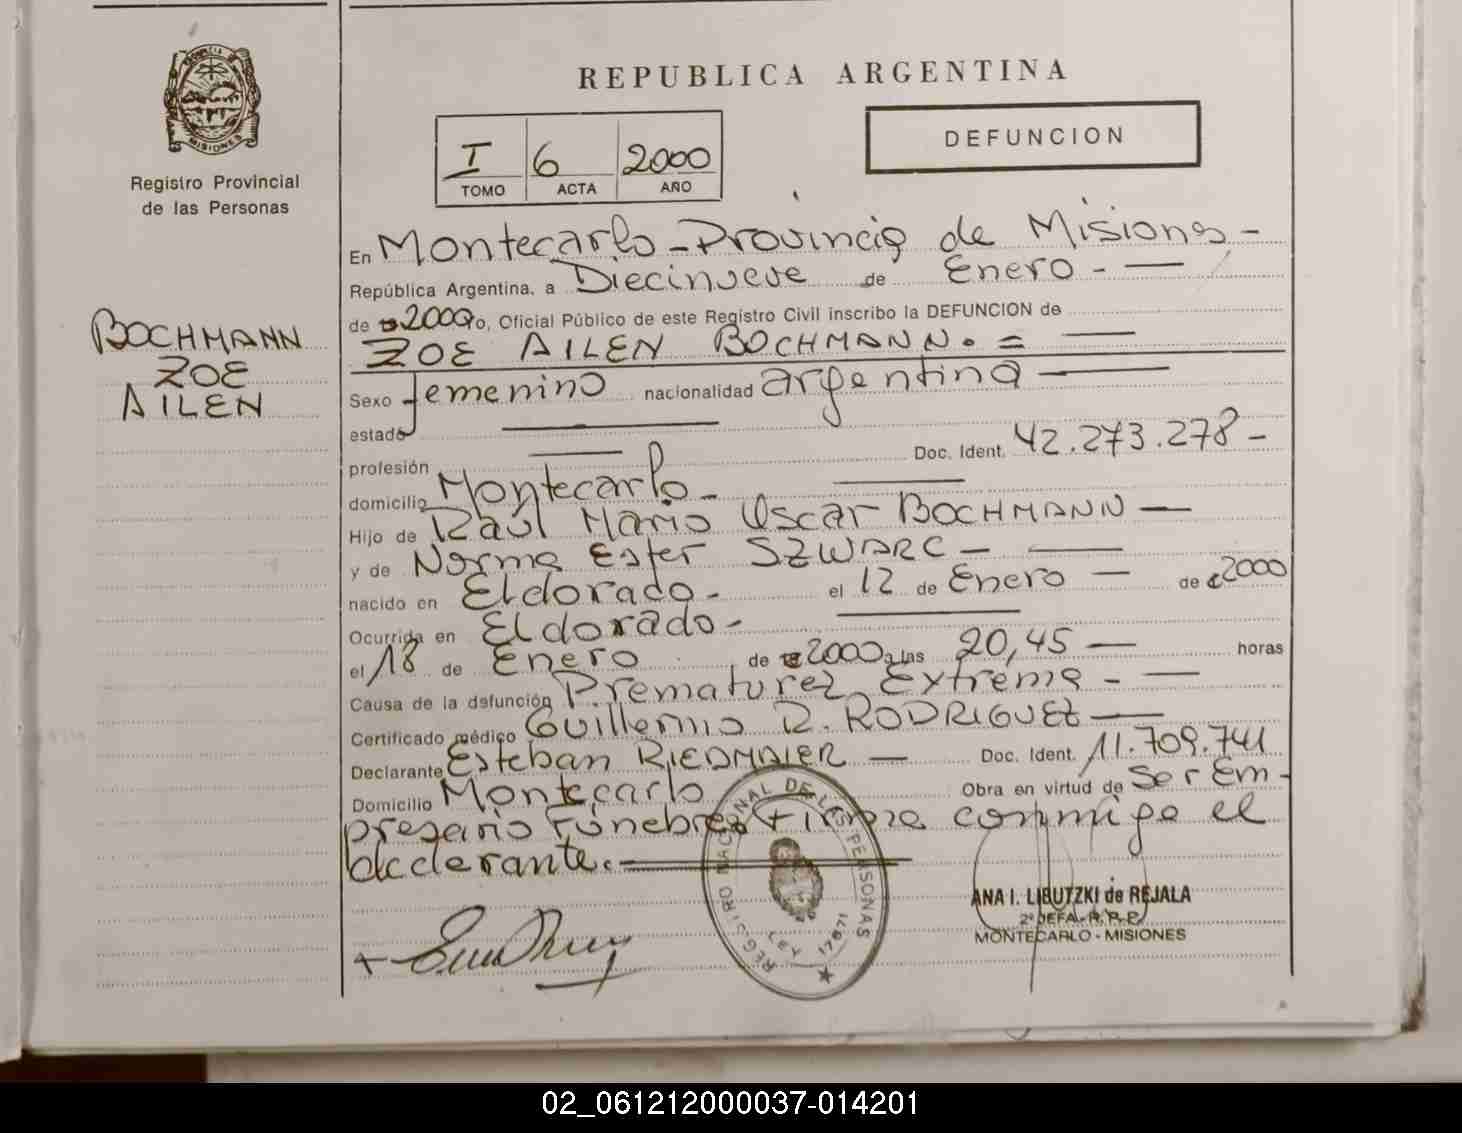 PROVINCIA DE MISIONES
Registro Provincial
de las Personas
BOCHMANN
ZOE
AILEN
REPUBLICA ARGENTINA
I 6 2000
TOMO ACTA AÑO
DEFUNCION
En Montecarlo - Provincia de Misiones -
República Argentina, a Diecinueve de Enero -
de 2000 yo, Oficial Público de este Registro Civil inscribo la DEFUNCION de
ZOE AILEN BOCHMANN. =
Sexo femenino nacionalidad argentina
estado
profesión Doc. Ident. 42.273.278 -
domicilio Montecarlo -
Hijo de Raúl Mario Oscar BOCHMANN -
y de Norma Ester SZWARC -
nacido en Eldorado - el 12 de Enero - de 2000
Ocurrida en Eldorado -
el 18 de Enero de 2000 a las 20,45 - horas
Causa de la defunción Prematurez Extrema -
Certificado médico Guillermo R. RODRIGUEZ -
Declarante Esteban RIEDMAIER - Doc. Ident. 11.709.741
Domicilio Montecarlo Obra en virtud de ser Em-
presario Fúnebre, Firma conmigo el
declarante. -
REGISTRO NACIONAL DE LAS PERSONAS
LEY 17671
ANA I. LIBUTZKI de REJALA
2º JEFA R.P.P.
MONTECARLO - MISIONES
02_061212000037-014201